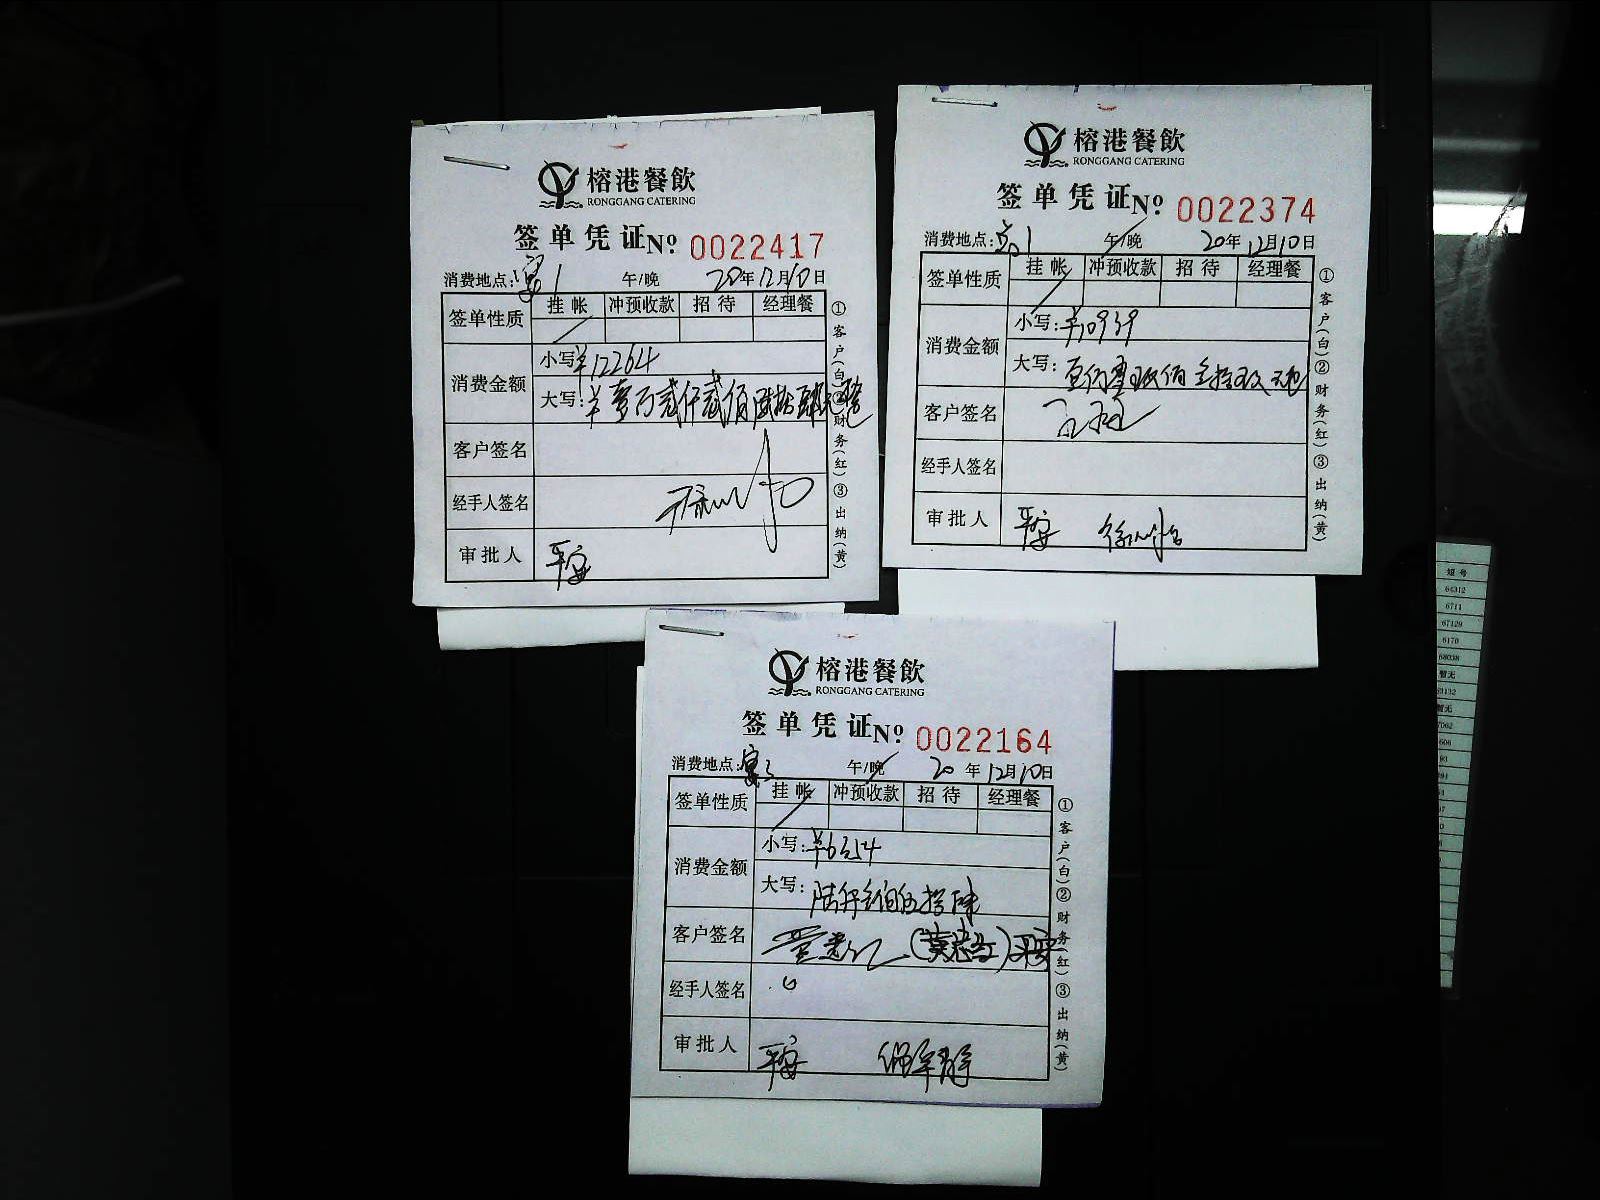 榕港餐飲
RONGGANG CATERING
签单凭证 No 0022417
消费地点: 宴1 午/晚 20年12月10日
签单性质 挂帐 冲预收款 招待 经理餐
消费金额 小写: ¥12264
大写: ¥壹万贰仟贰佰陆拾肆元整
客户签名
经手人签名
审批人 平安
①客户(白)②财务(红)③出纳(黄)
榕港餐飲
RONGGANG CATERING
签单凭证 No 0022374
消费地点: 1 午/晚 20年12月10日
签单性质 挂帐 冲预收款 招待 经理餐
消费金额 小写: ¥10939
大写:
客户签名
经手人签名
审批人 平安
①客户(白)②财务(红)③出纳(黄)
榕港餐飲
RONGGANG CATERING
签单凭证 No 0022164
消费地点: 宴3 午/晚 20年12月10日
签单性质 挂帐 冲预收款 招待 经理餐
消费金额 小写: ¥6354
大写: 陆仟叁佰伍拾肆
客户签名
经手人签名
审批人 平安
①客户(白)②财务(红)③出纳(黄)
短号
64312
6711
67129
6170
68038
暂无
暂无